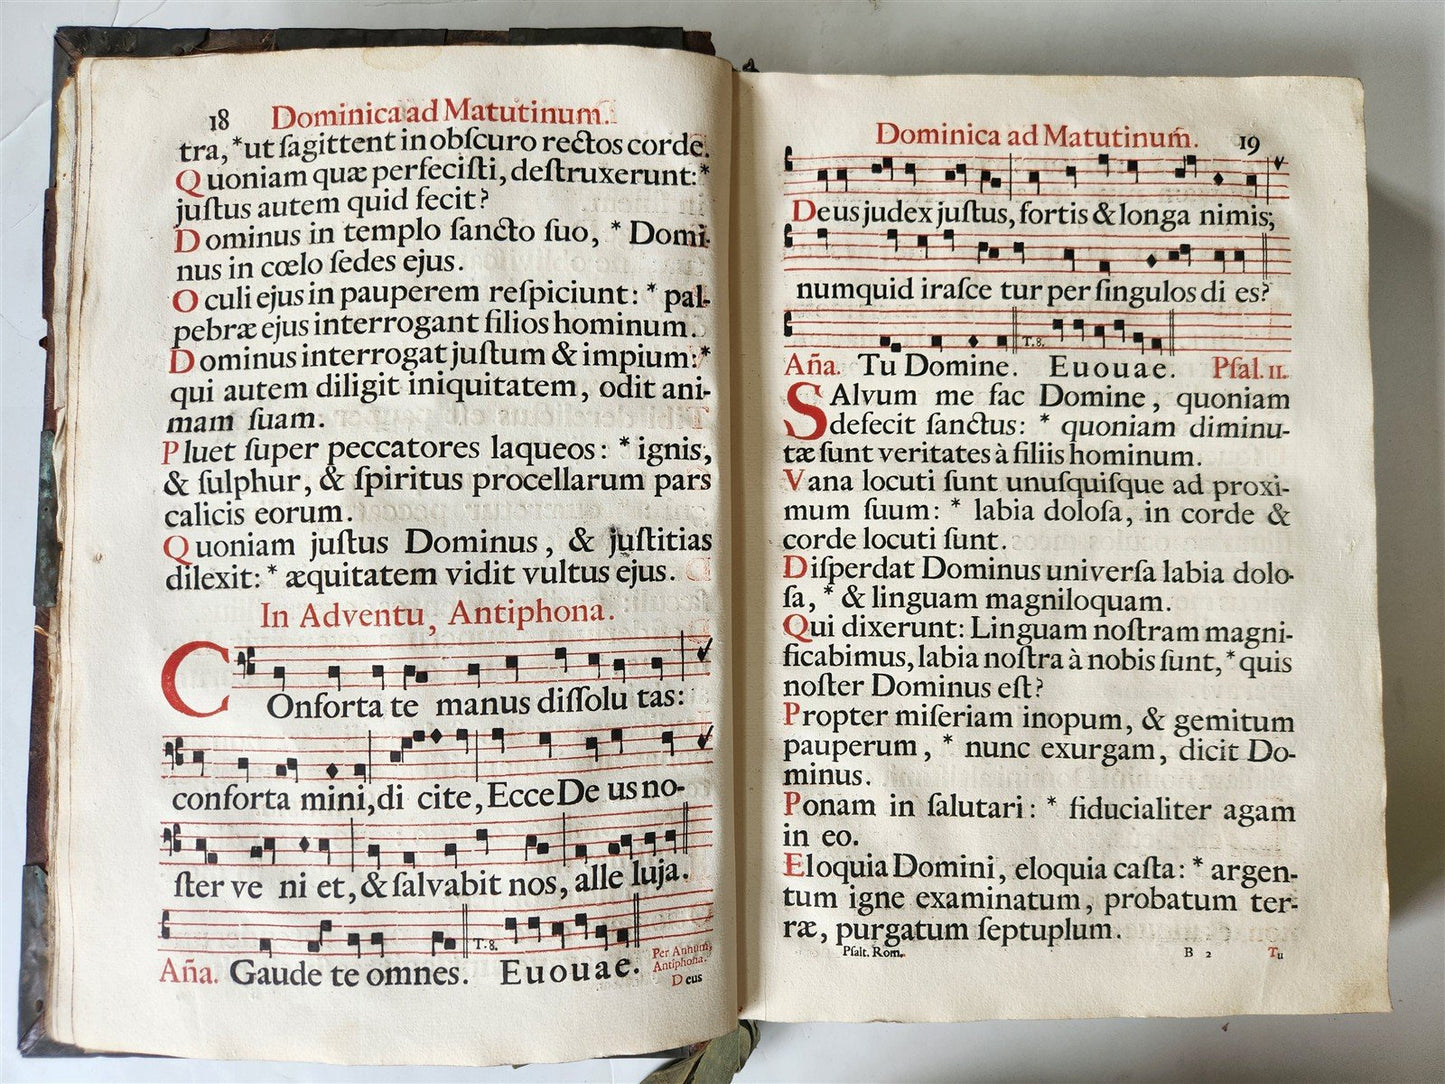 18 Dominica ad Matutinum.
tra, * ut ſagittent in obſcuro rectos corde.
Quoniam quæ perfeciſti, deſtruxerunt: *
juſtus autem quid fecit?
Dominus in templo ſancto ſuo, * Domi-
nus in cœlo ſedes ejus.
Oculi ejus in pauperem reſpiciunt: * pal-
pebræ ejus interrogant filios hominum.
Dominus interrogat juſtum & impium: *
qui autem diligit iniquitatem, odit ani-
mam ſuam.
Pluet ſuper peccatores laqueos: * ignis,
& ſulphur, & ſpiritus procellarum pars
calicis eorum.
Quoniam juſtus Dominus, & juſtitias
dilexit: * æquitatem vidit vultus ejus.
In Adventu, Antiphona.
COnforta te manus diſſolu tas:
conforta mini, di cite, Ecce De us no-
ſter ve ni et, & ſalvabit nos, alle luja.
T. 8.
Aña. Gaude te omnes. Euouae. Per Annum, Antiphona.
Deus
Dominica ad Matutinum̃. 19
Deus judex juſtus, fortis & longa nimis;
numquid iraſce tur per ſingulos di es?
T. 8.
Aña. Tu Domine. Euouae. Pſal. 11.
SAlvum me fac Domine, quoniam
defecit ſanctus: * quoniam diminu-
tæ ſunt veritates à filiis hominum.
Vana locuti ſunt unuſquiſque ad proxi-
mum ſuum: * labia doloſa, in corde &
corde locuti ſunt.
Diſperdat Dominus univerſa labia dolo-
ſa, * & linguam magniloquam.
Qui dixerunt: Linguam noſtram magni-
ficabimus, labia noſtra à nobis ſunt, * quis
noſter Dominus eſt?
Propter miſeriam inopum, & gemitum
pauperum, * nunc exurgam, dicit Do-
minus.
Ponam in ſalutari: * fiducialiter agam
in eo.
Eloquia Domini, eloquia caſta: * argen-
tum igne examinatum, probatum ter-
ræ, purgatum ſeptuplum.
Pſalt. Rom. B 2 Tu